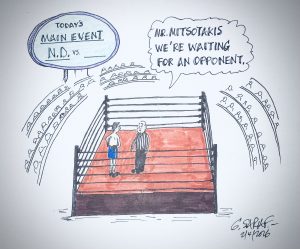 TODAY'S
MAIN EVENT
N.D. vs. ___
MR. MITSOTAKIS
WE'RE WAITING
FOR AN OPPONENT.
2/4/2026